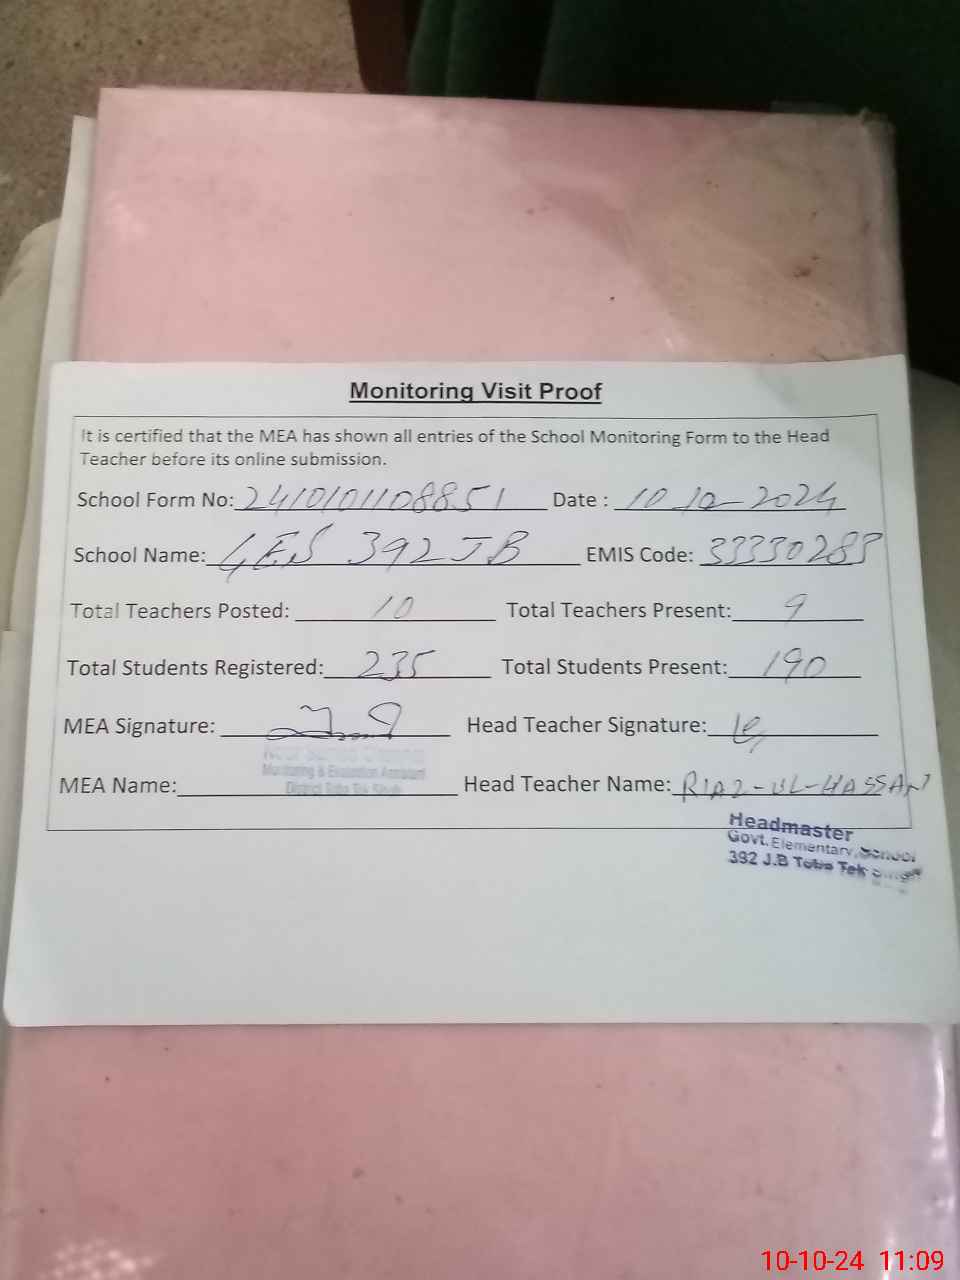 Monitoring Visit Proof
It is certified that the MEA has shown all entries of the School Monitoring Form to the Head
Teacher before its online submission.
School Form No: 2410101108851 Date : 10 10-2024
School Name: GES 392 JB EMIS Code: 33330283
Total Teachers Posted: 10 Total Teachers Present: 9
Total Students Registered: 235 Total Students Present: 190
MEA Signature: Head Teacher Signature:
Monitoring & Evaluation Assistant
MEA Name: District Toba Tek Singh Head Teacher Name: RIAZ-UL-HASSAN
Headmaster
Govt. Elementary School
392 J.B Toba Tek Singh
10-10-24 11:09